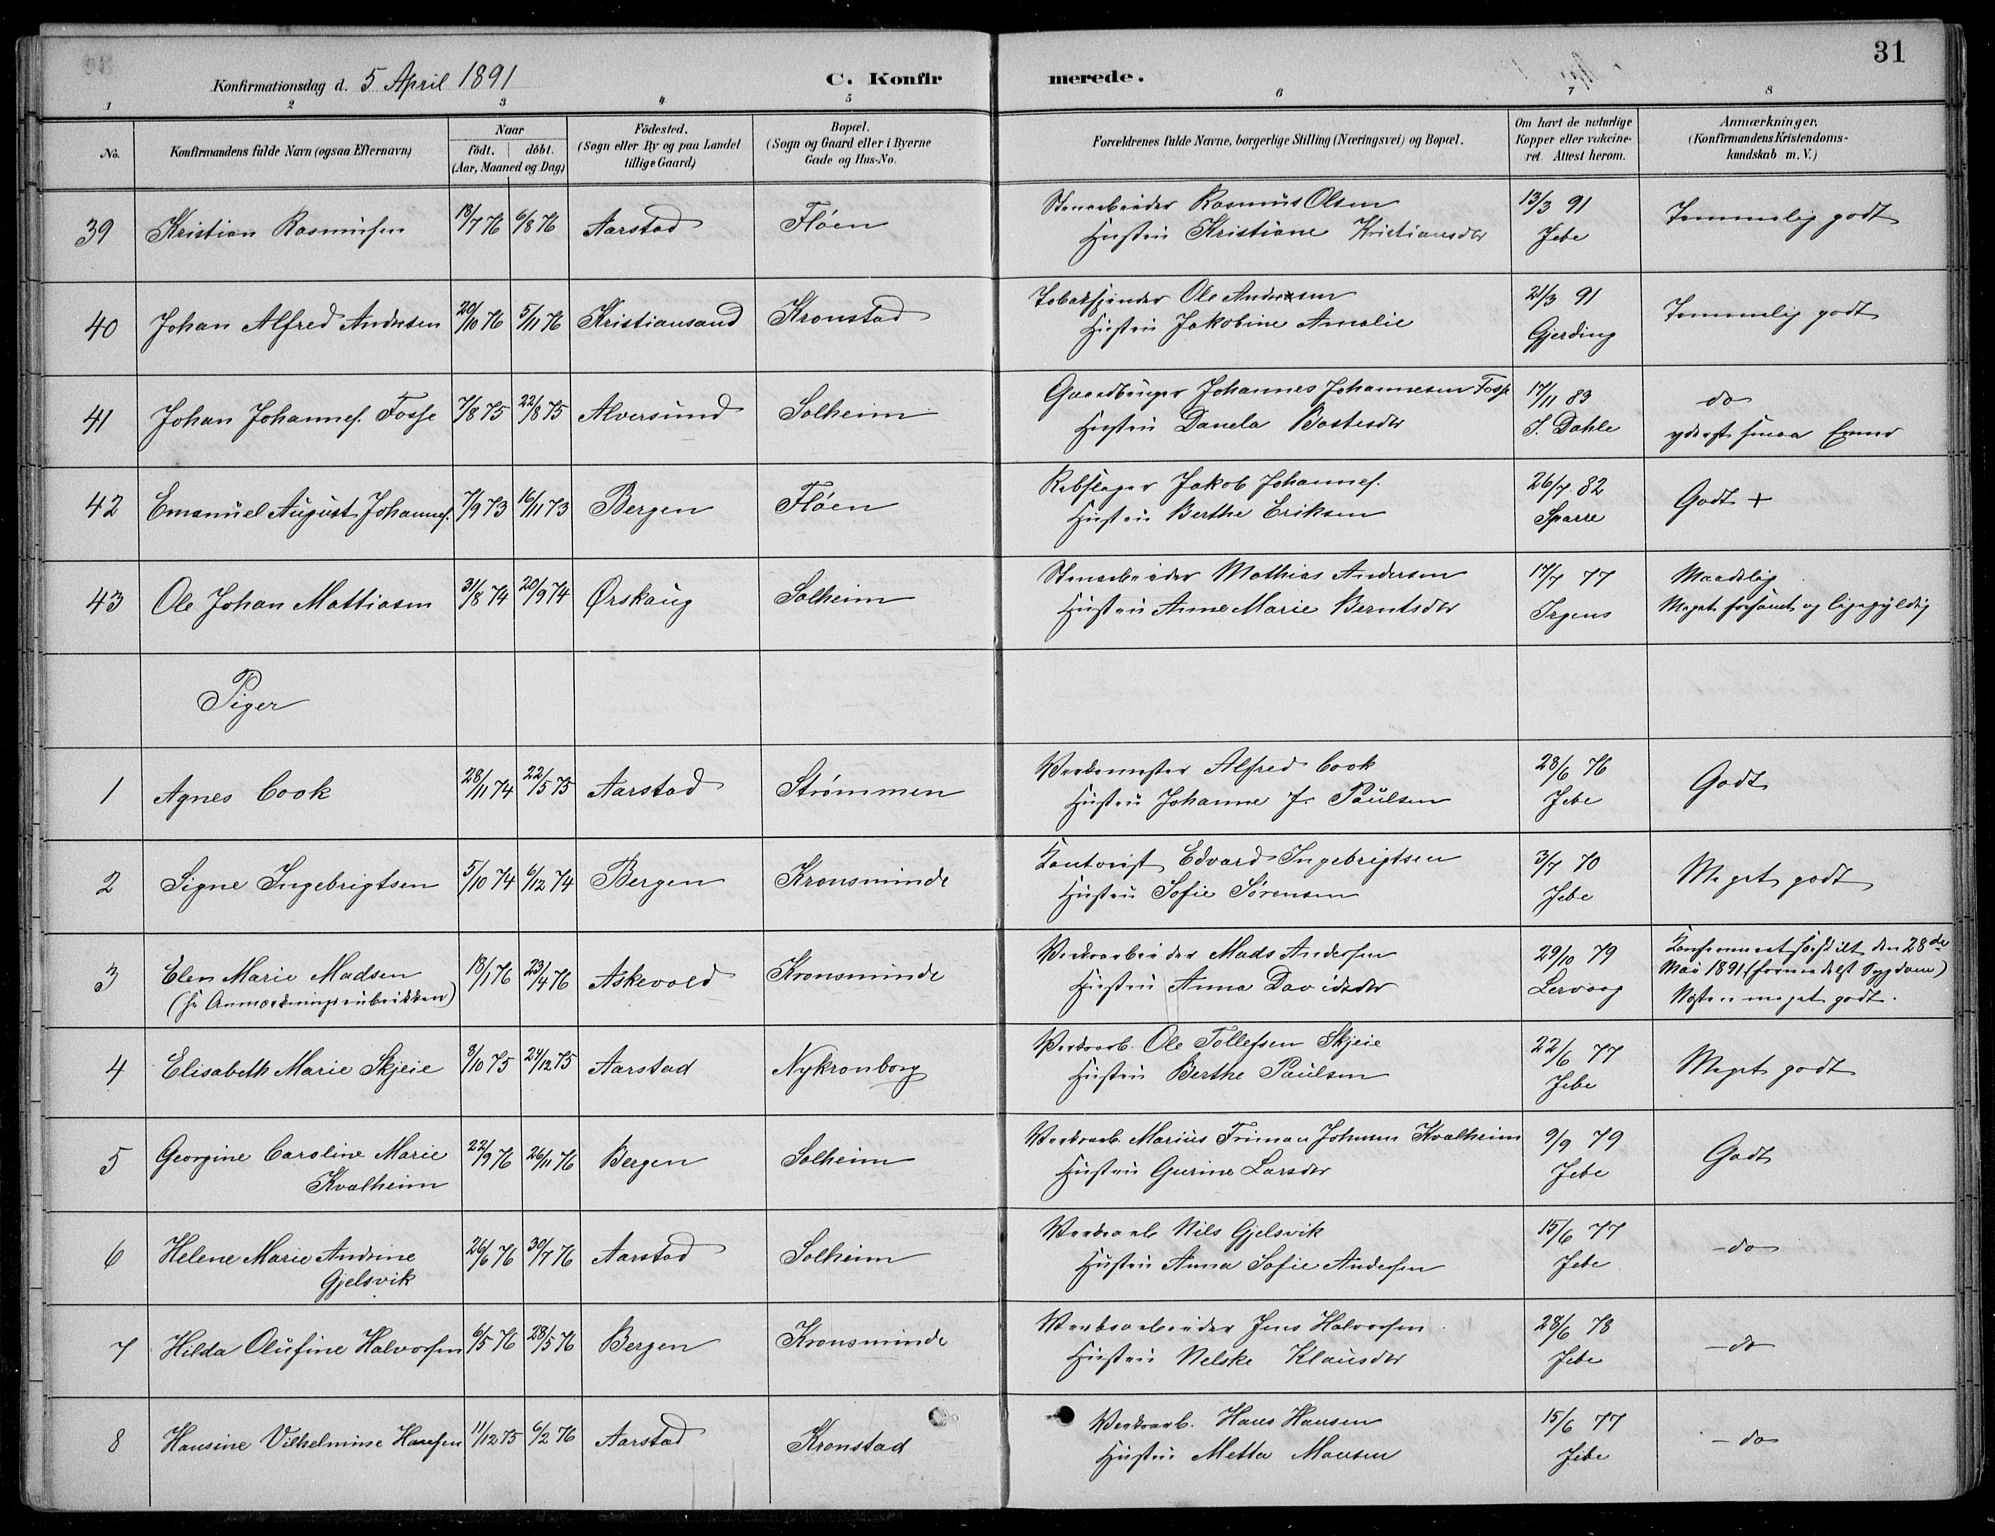 31
Konfirmationsdag d. 5 April 1891 C. Konfirmerede.
1 2 3 4 5 6 7 8
No. Konfirmandens fulde Navn (ogsaa Efternavn) Naar födt. döbt. (Aar, Maaned og Dag) Födested. (Sogn eller By og paa Landet tillige Gaard) Bopæl. (Sogn og Gaard eller i Byerne Gade og Hus-No. Forældrenes fulde Navne, borgerlige Stilling (Næringsvei) og Bopæl. Om havt de naturlige Kopper eller vakcineret. Attest herom. Anmærkninger, (Konfirmandens Kristendomskundskab m. V.)
39 Kristian Rasmussen 18/7 76 6/8 76 Aarstad Fløen Stenarbeider Rasmus Olsen 13/3 91 Temmelig godt
Hustru Kristiane Kristiansdtr Jebe
40 Johan Alfred Andersen 20/10 76 5/11 76 Kristiansand Kronstad Ole Andersen 21/3 91 Temmelig godt
Hustru Jakobine Amalie Gjerding
41 Johan Johannes. Fosse 7/8 75 22/8 75 Alversund Solheim Gaardbruger Johannes Johannesen Fosse 17/11 83 do
Hustru Danela Bostesdtr J. Dahle yderst smaa Evner
42 Emanuel August Johannes. 7/9 73 16/11 73 Bergen Fløen Rebslager Jakob Johannes. 26/7 82 Godt +
Hustru Berthe Eriksen Sparre
43 Ole Johan Mattiasen 31/8 74 20/9 74 Ørskoug Solheim Stenarbeider Mathias Andersen 17/7 77 Maadelig
Hustru Anne Marie Berntsdtr Irgens Meget forsømt og ligegyldig
Piger
1 Agnes Cook 28/11 74 22/5 75 Aarstad Strømmen Verksmester Alfred Cook 28/6 76 Godt
Hustru Johanne J. Paulsen Jebe
2 Signe Ingebrigtsen 5/10 74 6/12 74 Bergen Kronsminde Kontorist Edvard Ingebrigtsen 3/7 70 Meget godt
Hustru Sofie Sørensen Jebe
3 Elen Marie Madsen 18/1 76 23/4 76 Askevold Kronsminde Verksarbeider Mads Andersen 29/10 79 Konfirmeret særskilt den 28de
(se Anmærkningsrubrikken) Hustru Anna Davidsdtr Lervaag Mai 1891 (formedelst Sygdom)
Næsten meget godt.
4 Elisabeth Marie Skjeie 8/10 75 24/12 75 Aarstad Nykronborg Verksarb. Ole Tollefsen Skjeie 22/6 77 Meget godt
Hustru Berthe Paulsen Jebe
5 Georgine Caroline Marie 22/9 76 26/11 76 Bergen Solheim Verksarb. Marius Johnsen Kvalheim 9/9 79 Godt
Kvalheim Hustru Gurine Larsdtr Jebe
6 Helene Marie Andrine 26/6 76 30/7 76 Aarstad Solheim Verksarb Nils Gjelsvik 15/6 77 - do
Gjelsvik Hustru Anna Sofie Andersen Jebe
7 Hilda Olufine Halvorsen 6/5 76 28/5 76 Bergen Kronsminde Verksarbeider Jens Halvorsen 28/6 78 - do
Hustru Nelske Klausdtr Jebe
8 Hansine Vilhelmine Hansen 11/12 75 6/2 76 Aarstad Kronstad Verksarb. Hans Hansen 15/6 77 - do
Hustru Metta Monsen Jebe